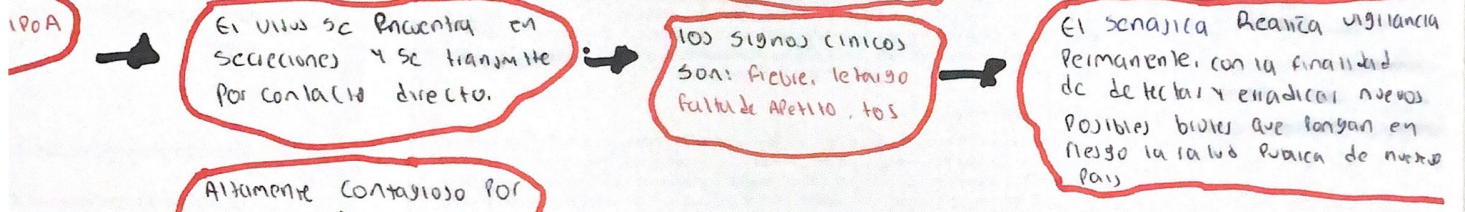 IPOA
El virus se encuentra en
secreciones y se transmite
por contacto directo.
los signos clinicos
son: fiebre, letargo
falta de apetito, tos
El senasica Realiza vigilancia
Permanente, con la finalidad
de detectar y erradicar nuevos
Posibles brotes que Pongan en
riesgo la salud Publica de nuestro
Pais
Altamente Contagioso Por